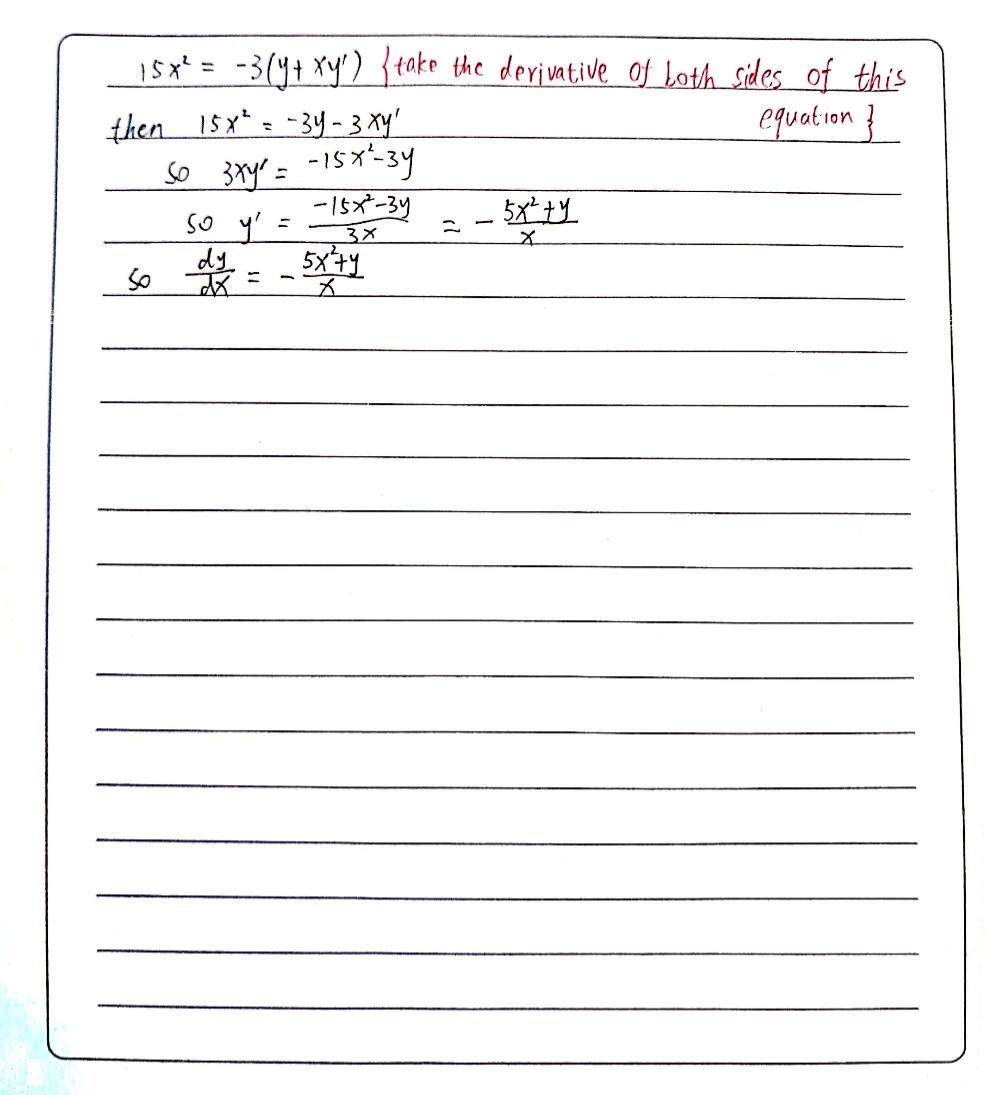 15x² = -3(y + xy') {take the derivative of both sides of this
equation}
then 15x² = -3y - 3xy'
so 3xy' = -15x² - 3y
so y' = (-15x² - 3y)/(3x) = - (5x² + y)/x
so dy/dx = - (5x² + y)/x